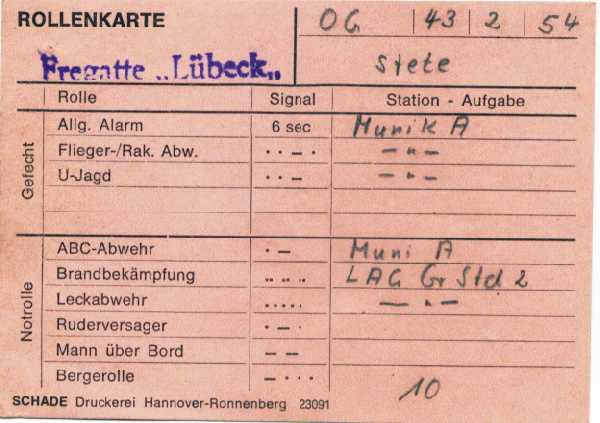 ROLLENKARTE OG 43 2 54
Fregatte „Lübeck„ Stete
Rolle Signal Station - Aufgabe
Gefecht
Allg. Alarm 6 sec Munik A
Flieger-/Rak. Abw. · · – · — " —
U-Jagd · · – — " —
Notrolle
ABC-Abwehr · – Muni A
Brandbekämpfung .. .. LAG Gr Std 2
Leckabwehr ..... — " —
Ruderversager · – ·
Mann über Bord – –
Bergerolle – · · ·
10
SCHADE Druckerei Hannover-Ronnenberg 23091